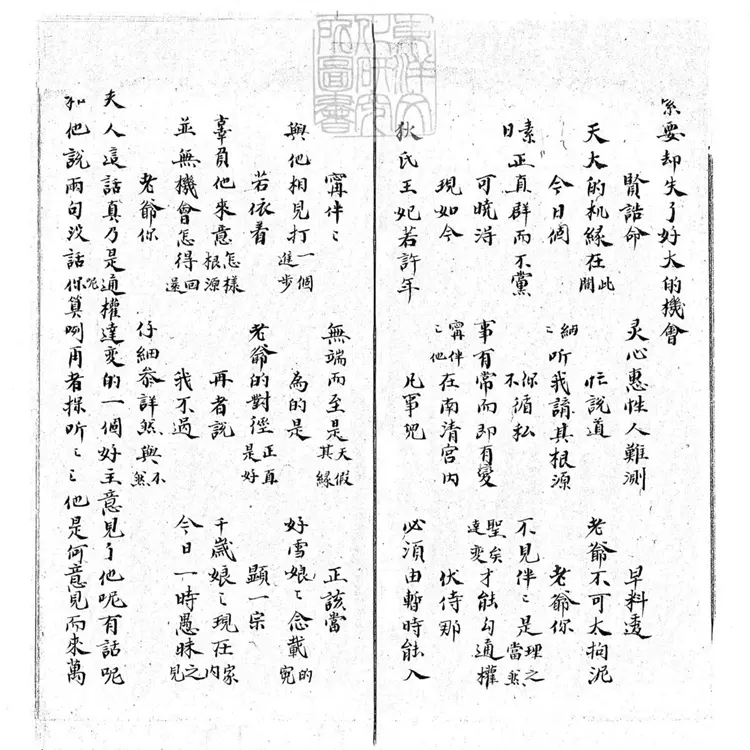 東洋文化研究所圖書
紧要却失了好大的機會
賢誥命 灵心惠性人難測 早料透
天大的机緣在此間 忙說道 老爺不可太拘泥
今日個 細〻听我講其根源 老爺你
素日正直群而不黨 你不循私 不見伴〻是理之當然
可曉得 事有常而即有變 聖矣達变才能勾通權
現如今 寗伴〻他在南清宮内 伏侍那
狄氏王妃若許年 凡事兒 必須由暫時能入
寗伴〻 無端而至是天假其緣 正該當
與他相見打一個進步 為的是 好雪娘〻念載的寃
若依着 老爺的對徑正直是好 顯一宗
辜負他來意怎樣根源 再者說 千歲娘〻現在家内
並無機會怎得回還 我不過 今日一時愚昧之見
老爺你 仔細叅詳然與不然
夫人這話真乃是通權達变的一個好主意見了他呢有話呢
和他說兩句没話你呢算咧再者探听〻〻他是何意見而來萬